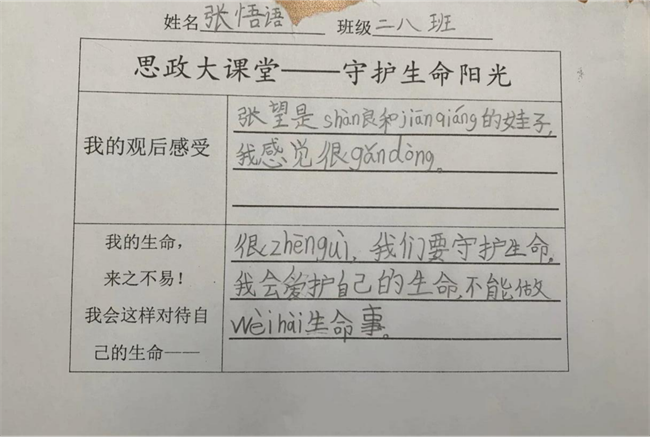 姓名 张悟语 班级 二八班
思政大课堂——守护生命阳光
我的观后感受
张望是shàn良和jiānqiáng的娃子,
我感觉很gǎndòng。
我的生命,
来之不易!
我会这样对待自
己的生命——
很zhēnguì, 我们要守护生命,
我会爱护自己的生命,不能做
wèihài生命事。